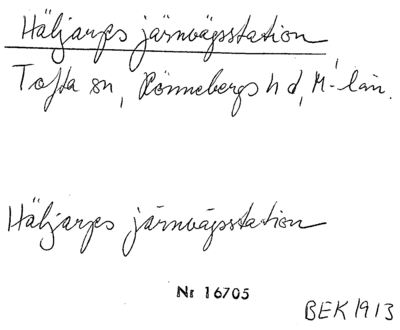 Häljarps järnvägsstation
Tofta sn, Rönnebergs hd, M-län.
Häljarps järnvägsstation
Nr 16705
BEK 1913